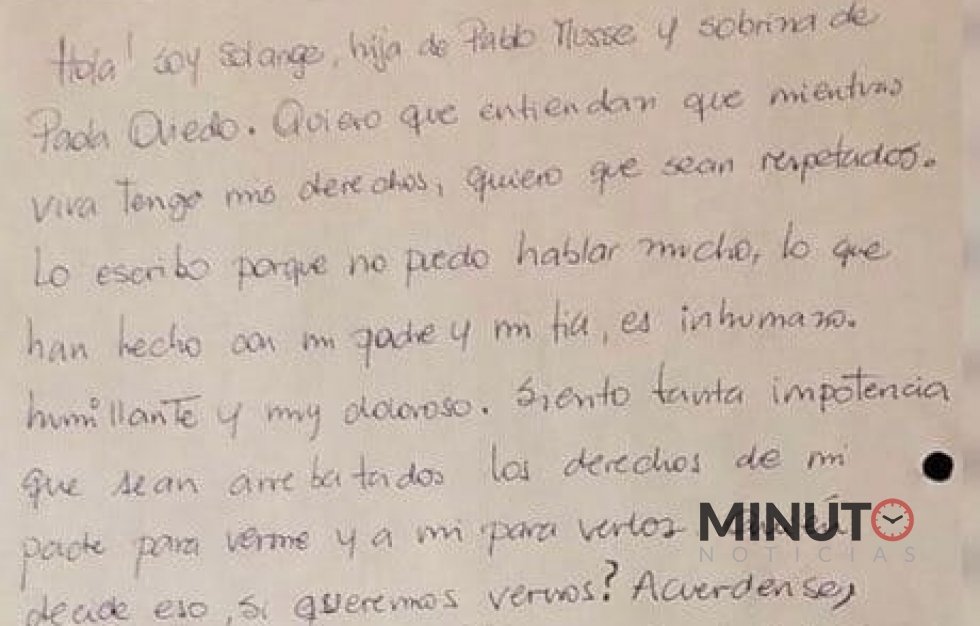 Hola! soy Solange, hija de Pablo Musse y sobrina de
Paola Oviedo. Quiero que entiendan que mientras
viva Tengo mis derechos, quiero que sean respetados.
Lo escribo porque no puedo hablar mucho, lo que
han hecho con mi padre y mi tia, es inhumano.
humillante y muy doloroso. Siento tanta impotencia
que sean arrebatados los derechos de mi
padre para verme y a mi para verlos
decide eso, si queremos vernos? Acuerdense,
MINUTO
NOTICIAS